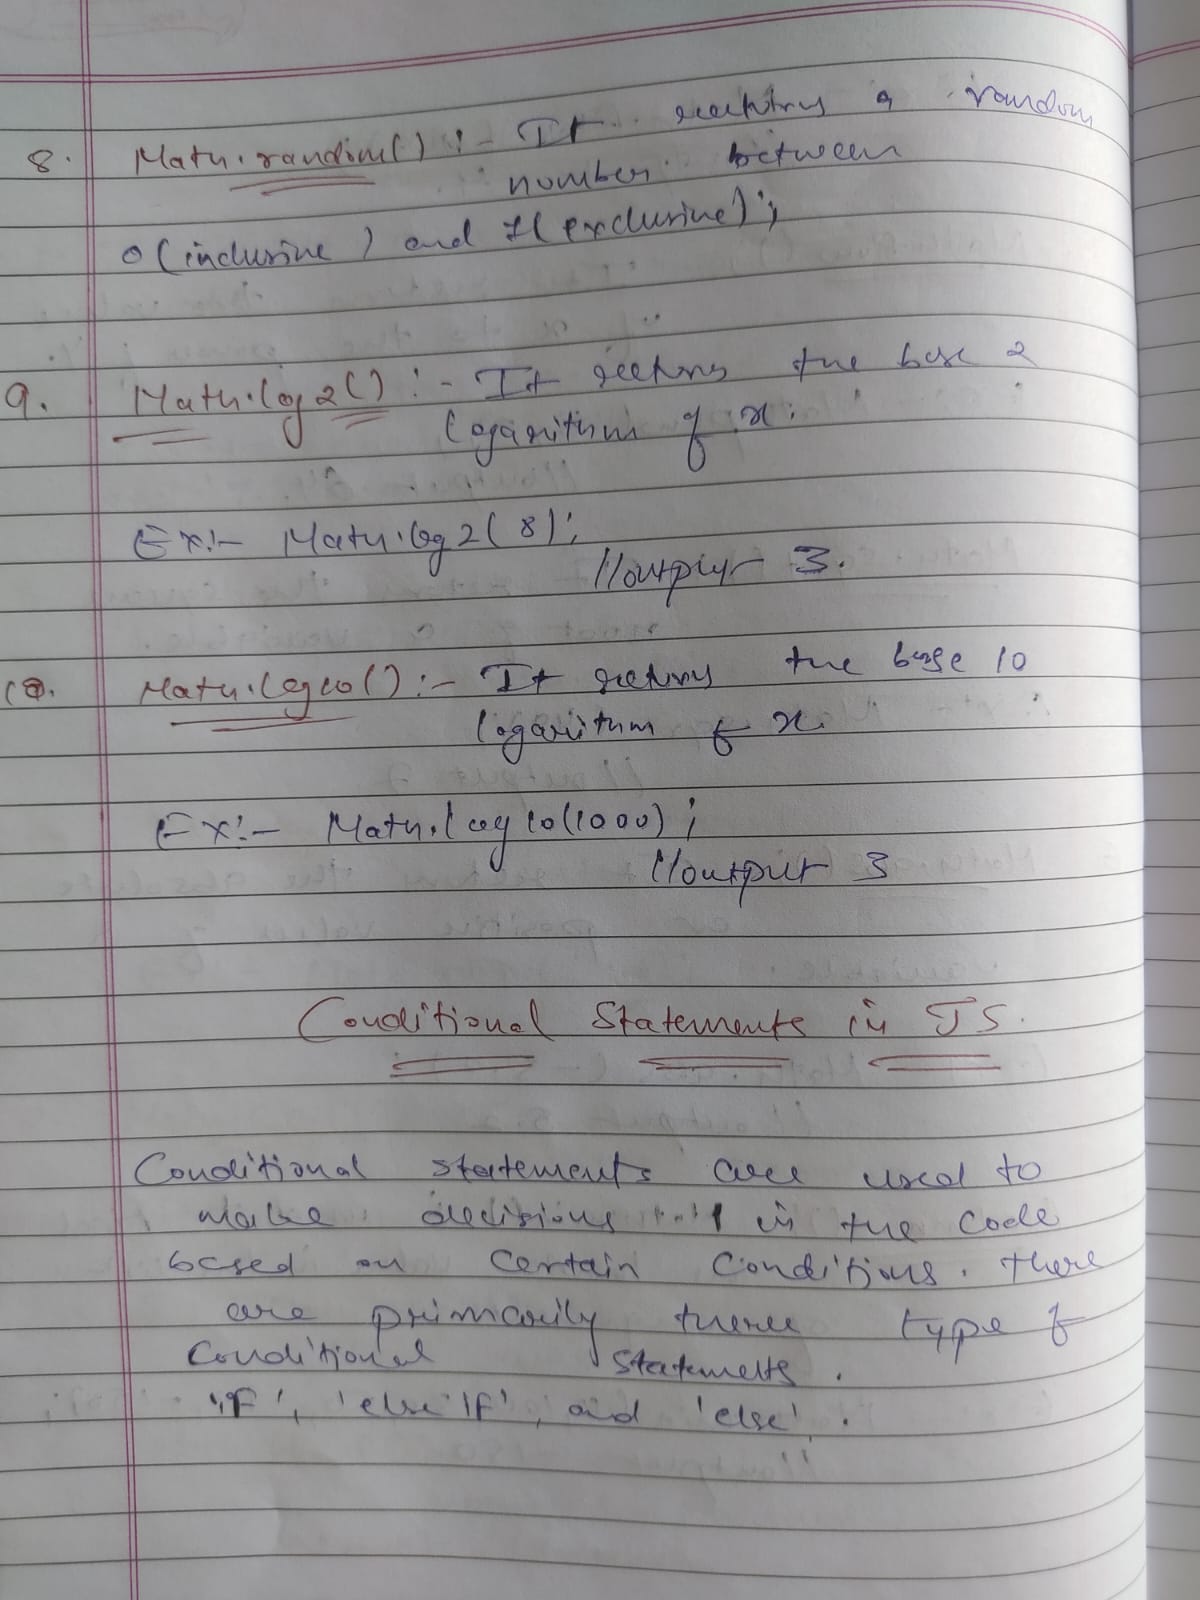 8. Math.random() :- It returns a random
number between
0(inclusive) and 1(exclusive);
9. Math.log2() :- It returns the base 2
logarithm of x.
Ex:- Math.log2(8);
//output 3.
10. Math.log10() :- It returns the base 10
logarithm of x.
Ex:- Math.log10(1000);
//output 3
Conditional Statements in JS.
Conditional statements are used to
make decisions in the code
based on certain conditions. There
are primarily three type of
Conditional statements.
'if', 'else if', and 'else'.